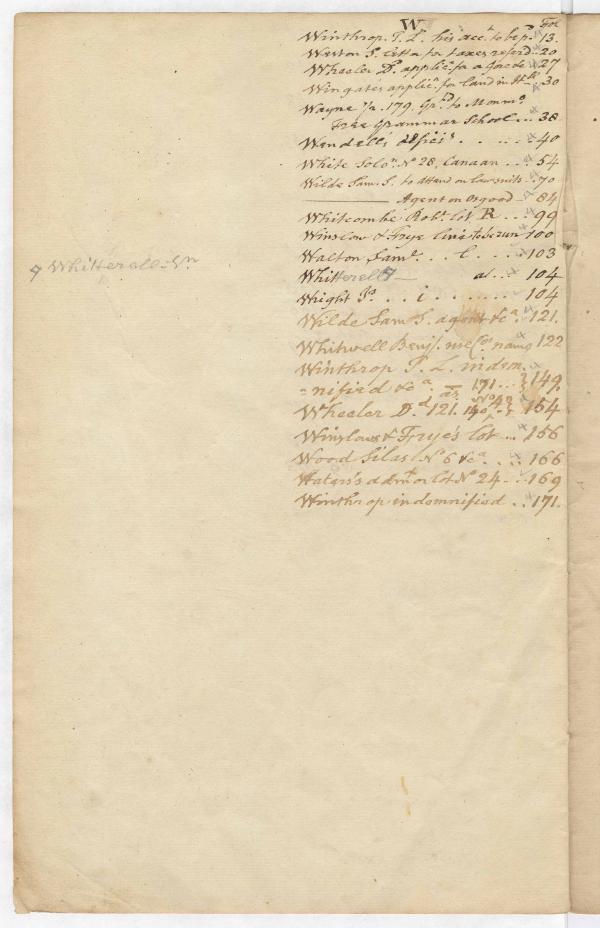 W Fol
Winthrop. T. L. his acct. to be pd. 13.
Weston S. for taxes referd. 20
Wheeler D. applicn. for a 27
Wingate's applicn. for land in 30
Wayne 1/2. 179. Grd. to Monmo.
Free Grammar School... 38
Wendell's 40
White Solon. No 28. Canaan... 54
Wilde Sam. S. to attend on lawsuits.. 70
Agent on Osgood 84
Whitcombe Robt. lot R... 99
Winslow & Frye line to be run 100
Walton Saml. .. l... 103
Whitterell al... 104
φ Whitterell Wm
Wright Js. .. i...... 104
Wilde Sam S. agent &ca. 121.
Whitwell Benj. 122
Winthrop T. L. indem-
=nified &ca. 171... 149.
Wheeler D. 121. 154
Winslow & Frye's lot... 156
Wood Silas No 6 &ca.... 166
on lot No 24... 169
Winthrop indemnified.. 171.